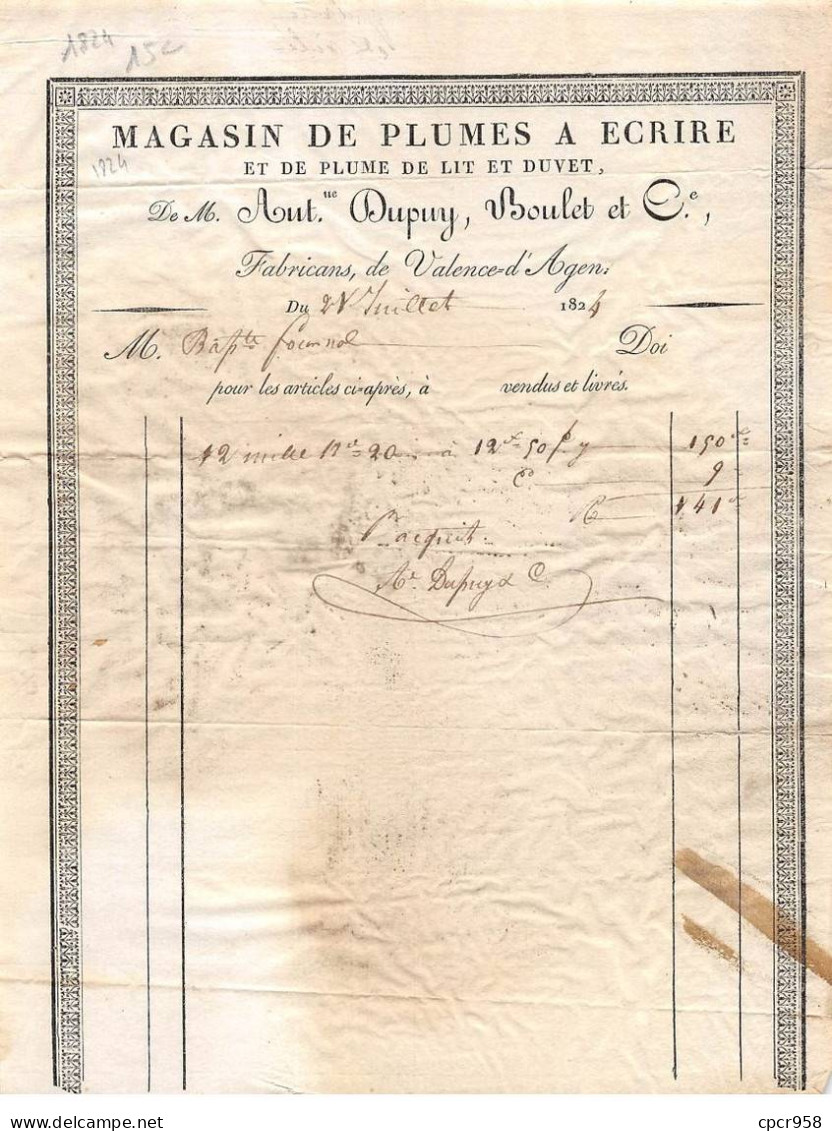 1824
15c
MAGASIN DE PLUMES A ECRIRE
1824
ET DE PLUME DE LIT ET DUVET,
De M. Ant.ne Dupuy, Boulet et C.e,
Fabricans, de Valence-d'Agen:
Du Juillet 1824
M. Bapte Doi
pour les articles ci-après, à vendus et livrés.
12 mille No 20 à 12f 50 150
9
141
Pacquit.
Ae Dupuy & C
cpcr958